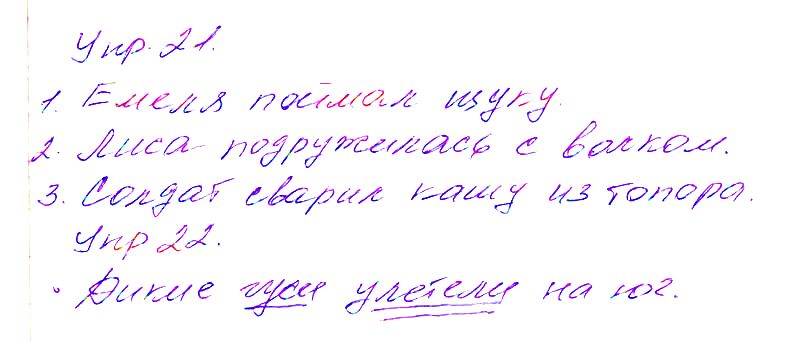 Упр. 21.
1. Емеля поймал щуку.
2. Лиса подружилась с волком.
3. Солдат сварил кашу из топора.
Упр 22.
• Дикие гуси улетели на юг.